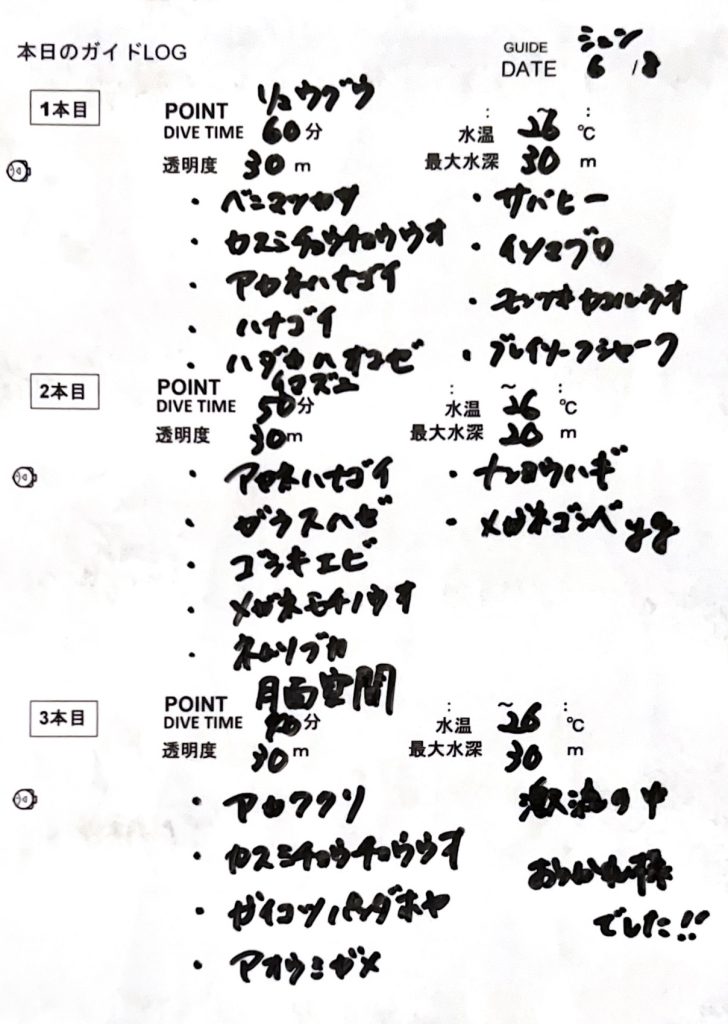 本日のガイドLOG
GUIDE シュン
DATE 6/8
1本目
POINT リュウグウ
DIVE TIME 60分
: ~ :
水温 26℃
透明度 30m
最大水深 30m
・ベニマツカサ
・カスミチョウチョウウオ
・アカネハナゴイ
・ハナゴイ
・ハダカハオコゼ
・サバヒー
・イソマグロ
・モンツキカエルウオ
・グレイリーフシャーク
2本目
POINT イロズエ
DIVE TIME 50分
: ~ :
水温 26℃
透明度 30m
最大水深 20m
・アカネハナゴイ
・ガラスハゼ
・ゴシキエビ
・メガネモチノウオ
・ネムリブカ
・ナンヨウハギ
・メガネゴンベyg
3本目
POINT 月面空間
DIVE TIME 分
: ~ :
水温 26℃
透明度 30m
最大水深 30m
・アカククリ
・カスミチョウチョウウオ
・ガイコツパンダホヤ
・アオウミガメ
激流の中
おつかれ様
でした!!